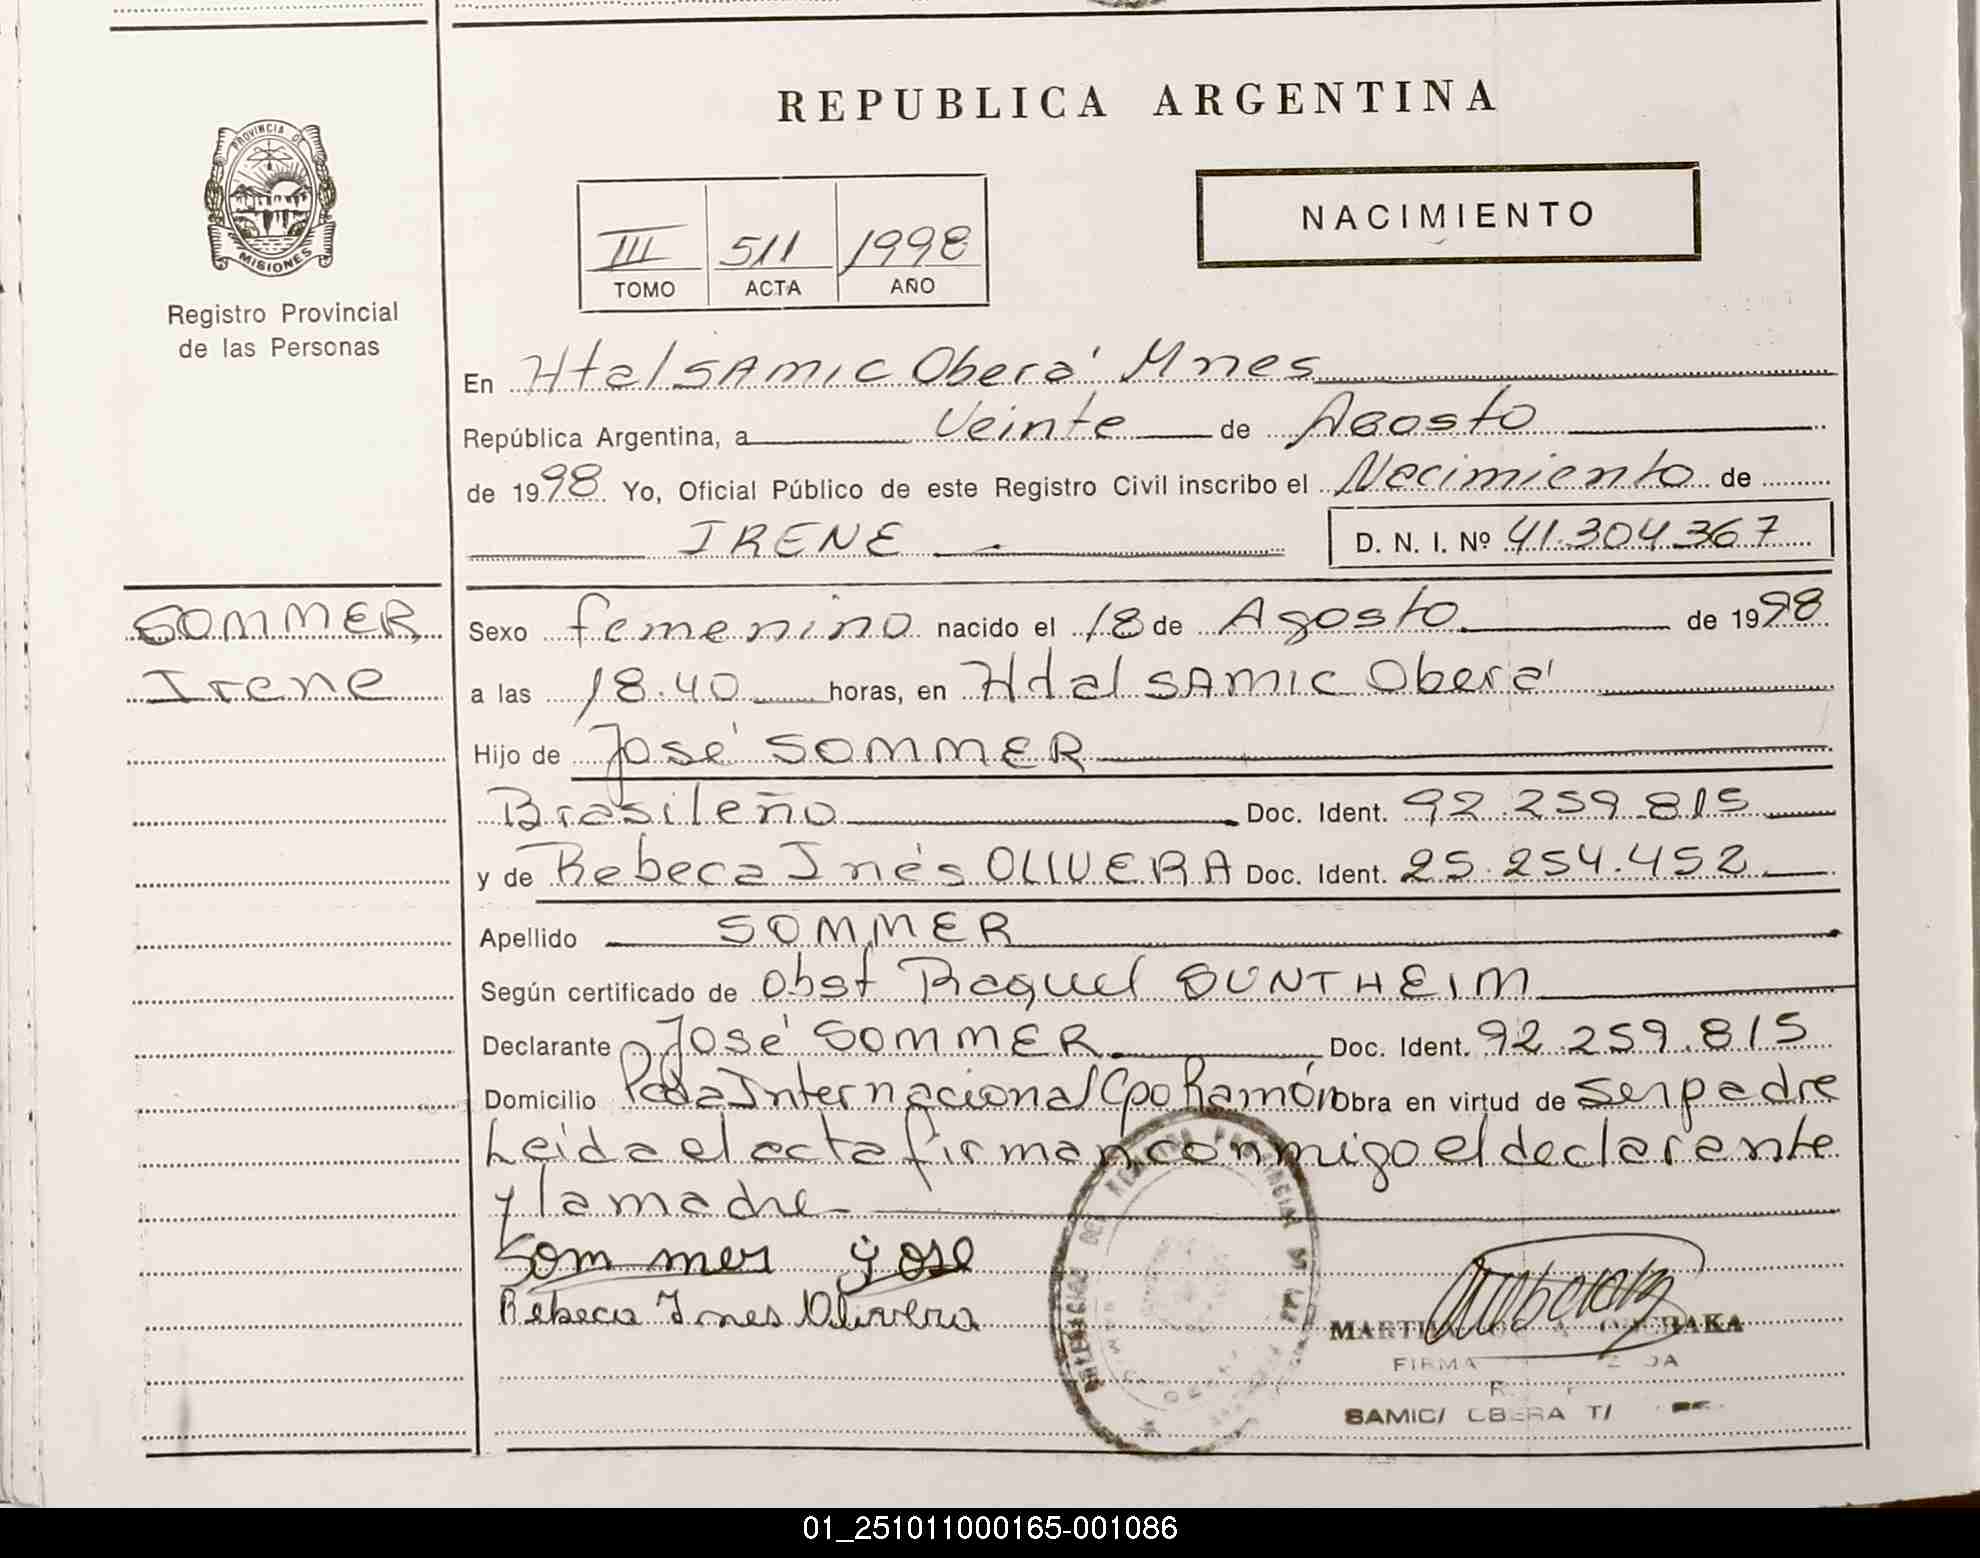 REPUBLICA ARGENTINA
PROVINCIA DE
MISIONES
Registro Provincial
de las Personas
III 511 1998
TOMO ACTA AÑO
NACIMIENTO
En Htal SAMIC Oberá Mnes
República Argentina, a Veinte de Agosto
de 1998 Yo, Oficial Público de este Registro Civil inscribo el Nacimiento de
IRENE D. N. I. Nº 41.304.367
SOMMER
Irene
Sexo femenino nacido el 18 de Agosto de 1998
a las 18.40 horas, en Htal SAMIC Oberá
Hijo de José SOMMER
Brasileño Doc. Ident. 92.259.815
y de Rebeca Inés OLIVERA Doc. Ident. 25.254.452
Apellido SOMMER
Según certificado de Obst Raquel SUNTHEIM
Declarante José SOMMER Doc. Ident. 92.259.815
Domicilio Pcda Internacional Cpo Ramón Obra en virtud de ser padre
Leida el acta firman conmigo el declarante
y la madre
Sommer jose
Rebeca Ines Olivera
FIRMA
SAMIC/ OBERA
01_251011000165-001086